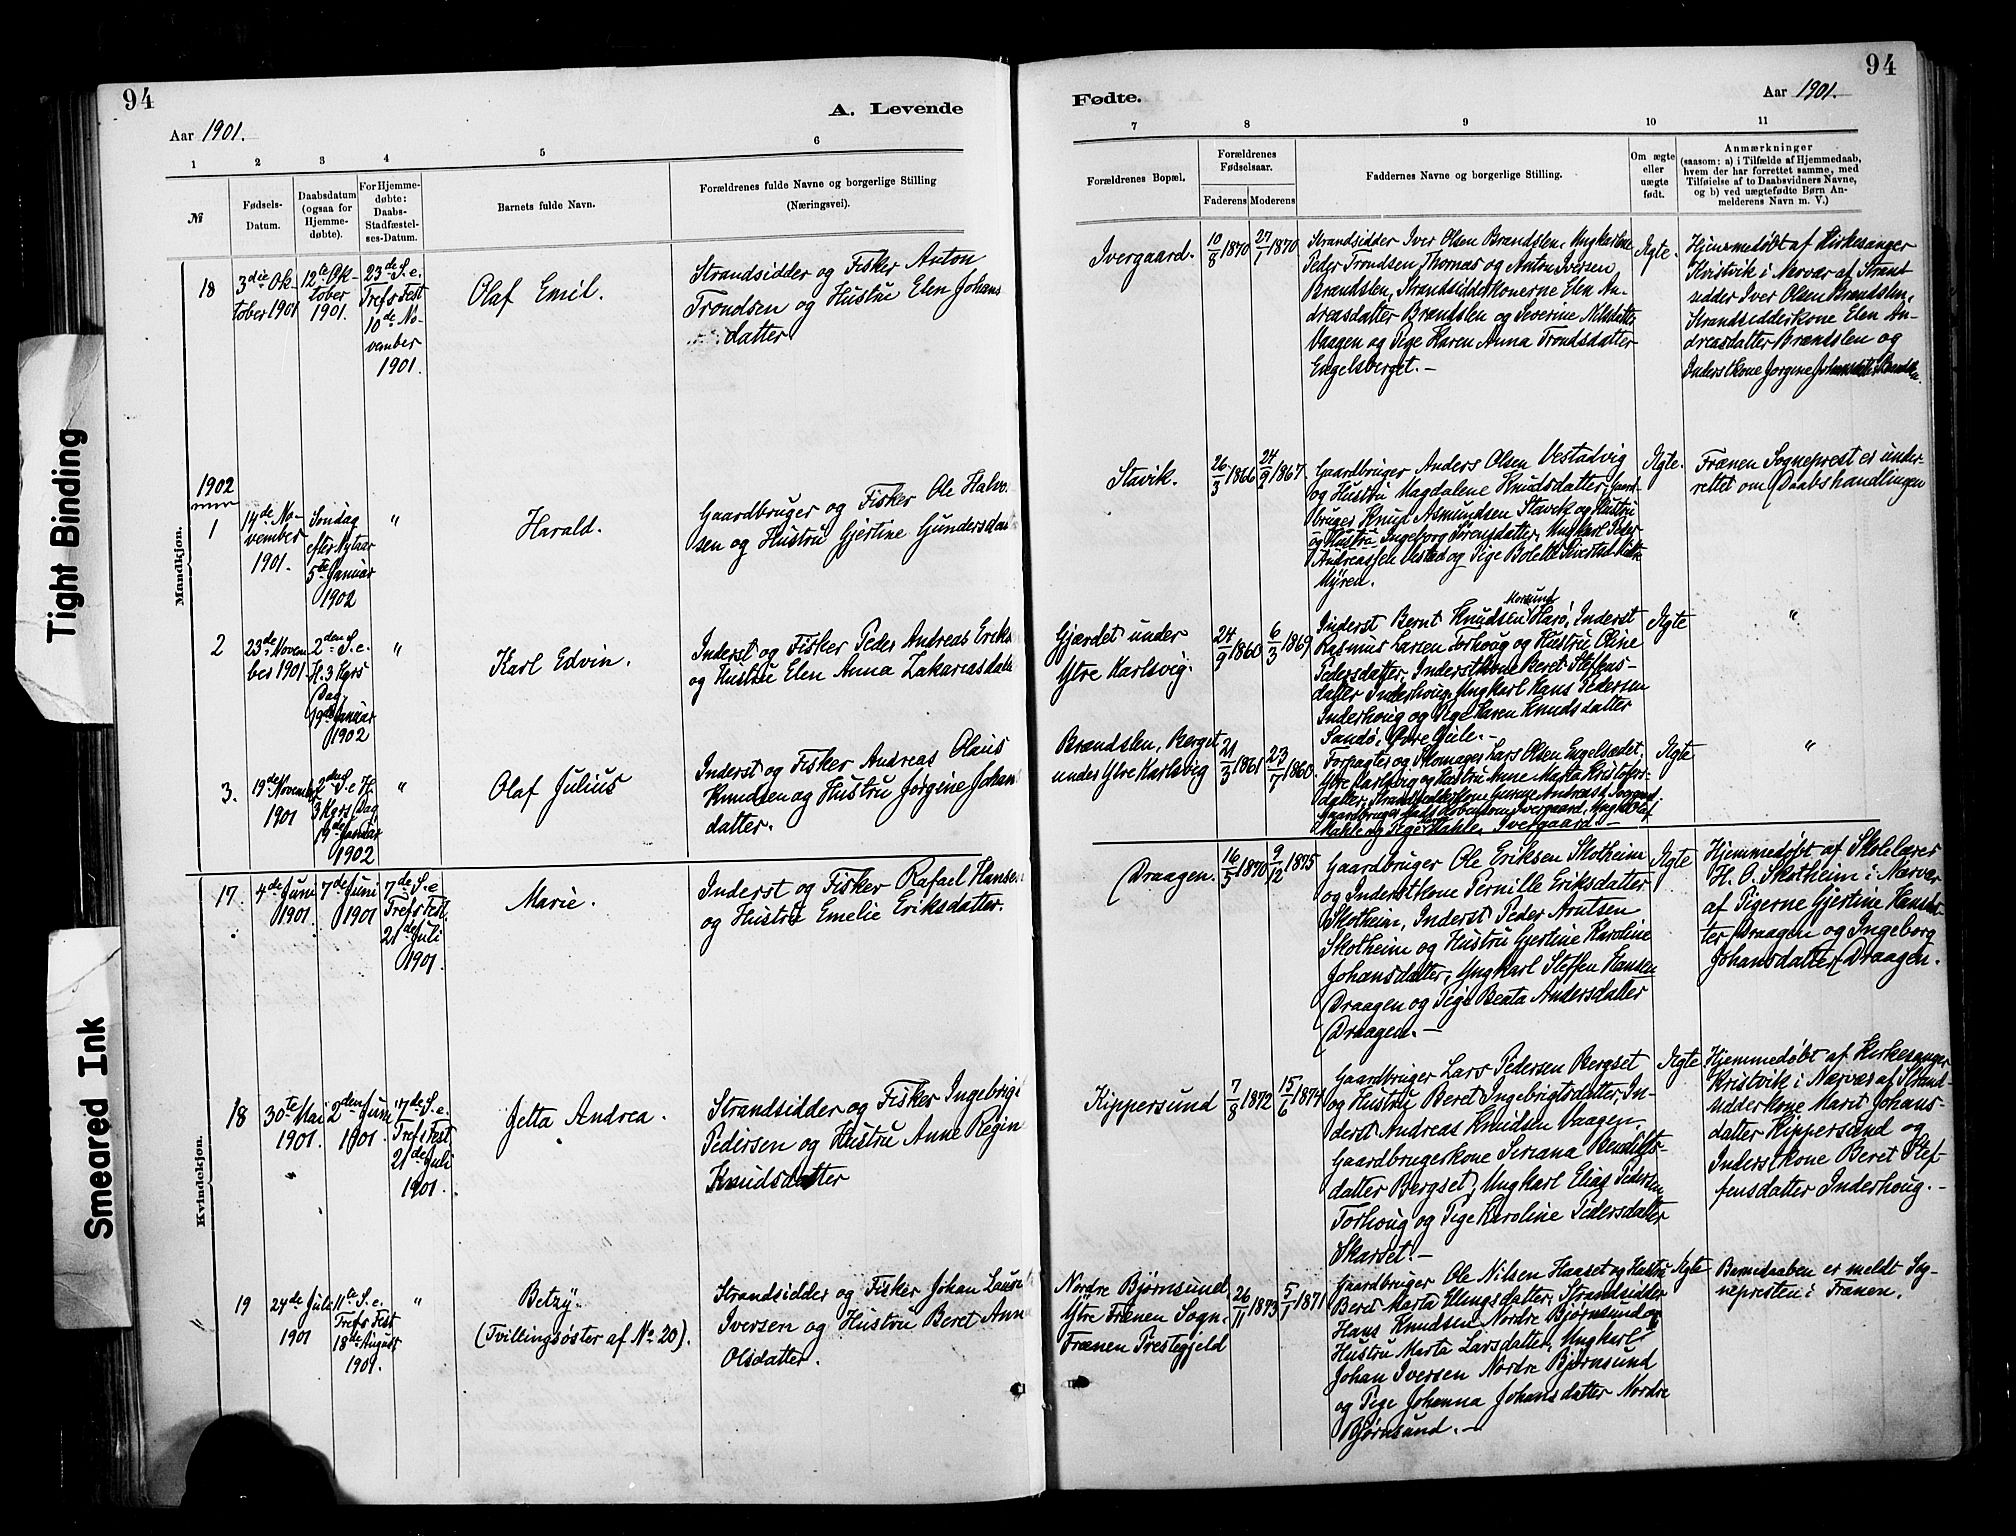 94
A. Levende
Aar 1901.
1 2 3 4 5 6
№
Fødsels-
Datum.
Daabsdatum
(ogsaa for
Hjemme-
døbte).
For Hjemme-
døbte:
Daabs-
Stadfæstel-
ses-Datum.
Barnets fulde Navn.
Forældrenes fulde Navne og borgerlige Stilling
(Næringsvei).
Mandkjøn.
18
3die Ok-
tober 1901
12te Ok-
tober
1901.
23de S. e.
Trefs Fest
10de No-
vember
1901.
Olaf Emil.
Strandsidder og Fisker Anton
Trondsen og Hustru Elen Johans
datter
1902
1
14de No-
vember
1901.
Søndag
efter Nytaar
5te Januar
1902
"
Harald.
Gaardbruger og Fisker Ole Halvo
sen og Hustru Gjertine Gundersda
2
23de Novem
ber 1901
2den S. e.
H. 3 Kgrs
Dag
19de Januar
1902
"
Karl Edvin.
Inderst og Fisker Peder Andreas Eriks
og Hustru Elen Anna Zakariasdat
3.
19de November
1901
2den S. e. H.
3 Kgrs Dag
19de Januar
1902
"
Olaf Julius
Inderst og Fisker Andreas Olaus
Knudsen og Hustru Jørgine Johan
datter.
Kvindekjøn.
17.
4de Juni
1901.
7de Juni
1901
7de S. e
Trefs Fest.
21de Juli
1901.
Marie.
Inderst og Fisker Rafael Hansen
og Hustru Emelie Eriksdatter.
18
30te Mai
1901.
2den Juni
1901.
7de S. e.
Trefs Fest
21de Juli
1901.
Jetta Andrea.
Strandsidder og Fisker Ingebrigt
Pedersen og Hustru Anne Regin
Knudsdatter
19
24de Juli
1901
11te S. e.
Trefs Fest
18de August
1901.
"
Betzy.
(Tvillingsøster af No 20).
Strandsidder og Fisker Johan Laur
Iversen og Hustru Beret Ann
Olsdatter.
94
Fødte.
Aar 1901.
7 8 9 10 11
Forældrenes Bopæl.
Forældrenes
Fødselsaar.
Faderens Moderens
Faddernes Navne og borgerlige Stilling.
Om ægte
eller
uægte
født.
Anmærkninger
(saasom: a) i Tilfælde af Hjemmedaab,
hvem der har forrettet samme, med
Tilføielse af to Daabsvidners Navne,
og b) ved uægtefødte Børn An-
melderens Navn m. V.)
Ivergaard.
10/8 1870
27/1 1870
Strandsidder Iver Olsen Brændslen, Ungkarlene
Peder Trondsen Thornæs og Anton Iversen
Brændslen, Strandsidderkonerne Elen An-
dreasdatter Brændslen og Severine Nilsdatter
Vaagen og Pige Karen Anna Trondsdatter
Engelsberget.—
Ægte.
Hjemmedøbt af Kirkesanger
Kristvik i Nærvær af Strand
sidder Iver Olsen Brændslen,
Strandsidderkone Elen An-
dreasdatter Brændslen og
Inderstkone Jørgine
Stavik.
26/3 1866
24/9 1867
Gaardbruger Anders Olsen Vestadvig
og Hustru Magdalene Knudsdatter, Gaard-
bruger Knud Asmundsen Stavik og Hustru
og Hustru Ingeborg Sørensdatter, Ungkarl Peder
Andreassen Vestad og Pige Bolette
Myren.
Ægte.
Frænen Sogneprest er under-
rettet om Daabshandlingen
Gjærdet under
Ytre Karlsvig.
24/9 1860
6/3 1869
Inderst Bernt Knudsen Morsund Harø, Inderst
Rasmus Larsen Torhoug og Hustru Oline
Pedersdatter, Inderstkone Beret Steffens-
datter Inderhoug, Ungkarl Hans Pedersen
Inderhoug og Pige Karen Knudsdatter
Sandø,
Ægte
"
Brændslen, Berget
under Ytre Karlsvig
21/3 1861
23/7 1860
Forpagter og Skomager Lars Olsen Engelsædet
Ytre Karlsvig og Hustru Anne Marta Kristofers-
datter, Strandsidderkone
Ivergaard.—
Ægte
"
Draagen.
16/5 1870
9/12 1875
Gaardbruger Ole Eriksen Skotheim
og Inderstkone Pernille Eriksdatter
Skotheim, Inderst Peder Arntsen
Skotheim og Hustru Gjertine Karoline
Johansdatter, Ungkarl Steffen Hansen
Draagen og Pige Beata Andersdatter
Draagen.—
Ægte
Hjemmedøbt af Skolelærer
H. O. Skotheim i Nærvær
af Pigerne Gjertine Hansdat-
ter Draagen og Ingeborg
Johansdatter Draagen.
Kippersund
7/8 1872
15/6 1874
Gaardbruger Lars Pedersen Bergset
og Hustru Beret Ingebrigtsdatter, In-
derst Andreas Knudsen Vaagen,
Gaardbrugerkone Siriana Benedikts-
datter Bergset, Ungkarl Elias Pedersen
Torhoug og Pige Karoline Pedersdatter
Skarset.—
Ægte
Hjemmedøbt af Kirkesanger
Kristvik i Nærvær af Strand-
sidderkone Marit Johans-
datter Kippersund og
Inderstkone Beret Stef-
fensdatter Inderhoug.—
Nordre Bjørnsund
Ytre Frænen Sogn,
Frænen Prestegjeld
26/11 1873
5/1 1871
Gaardbruger Ole Nilsen Haaset og Hustru
Beret Marta Ellingsdatter, Strandsidder
Hans Knudsen Nordre Bjørnsund og
Hustru Marta Larsdatter, Ungkarl
Johan Iversen Nordre Bjørnsund
og Pige Johanna Johansdatter Nordre
Bjørnsund.—
Ægte
Barnedaaben er meldt So-
gnepresten i Frænen.
Tight Binding
Smeared Ink